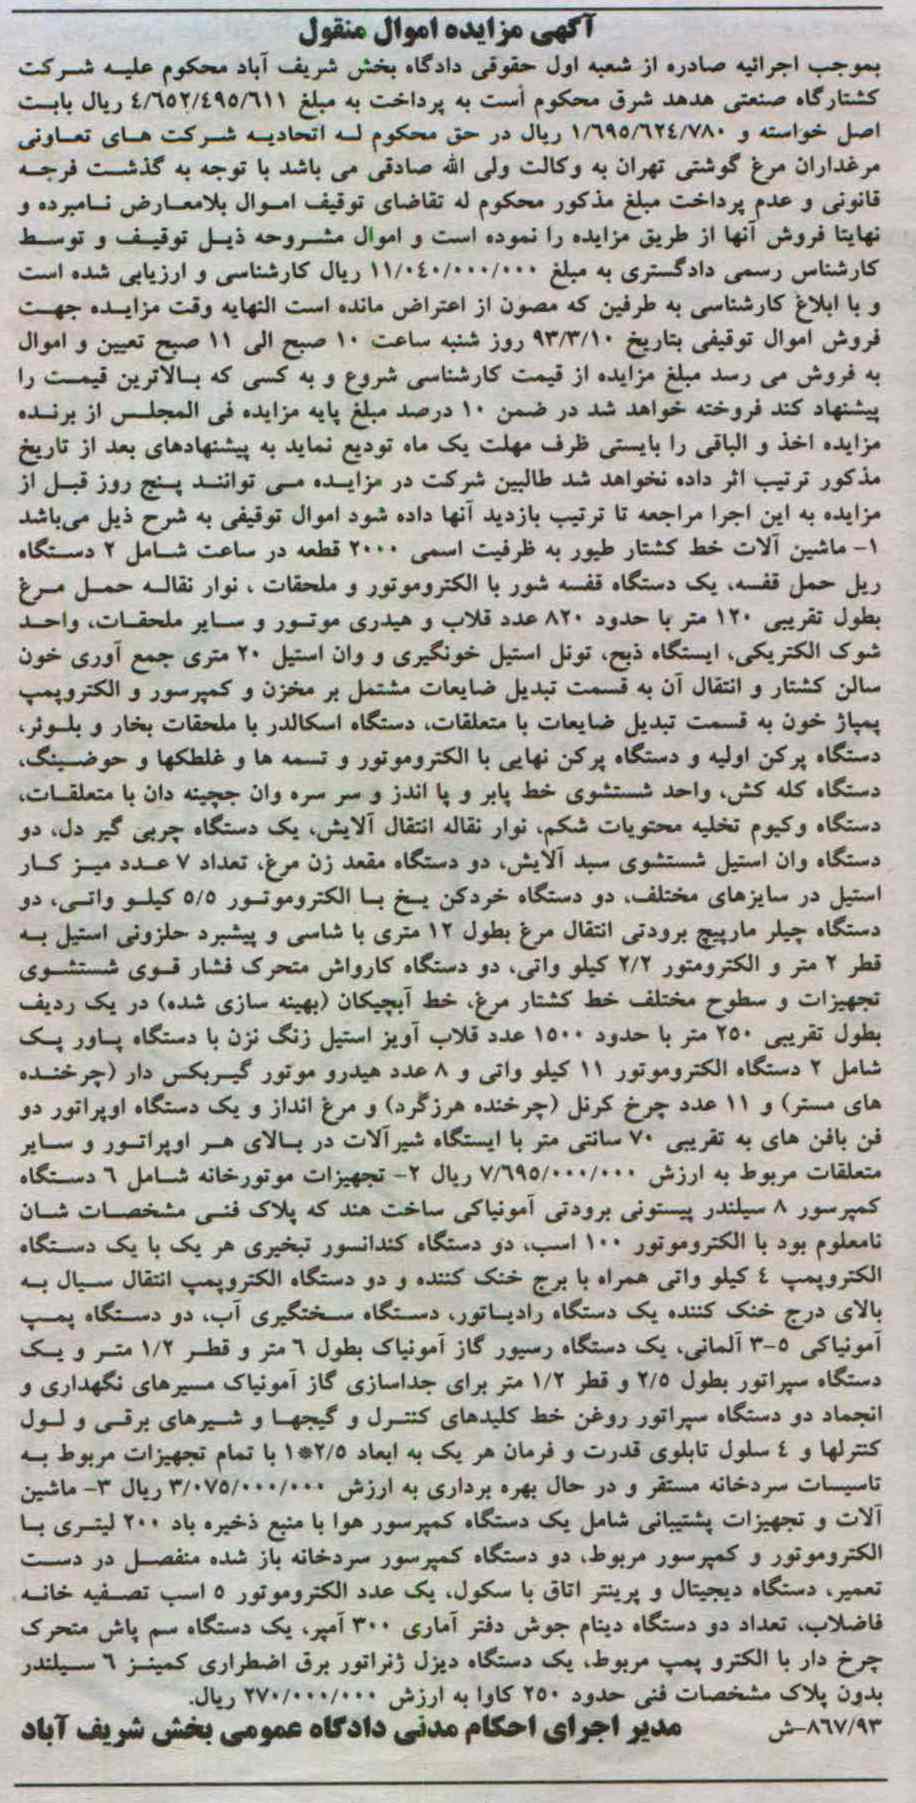 آگهی مزایده اموال منقول
بموجب اجرائیه صادره از شعبه اول حقوقی دادگاه بخش شریف آباد محکوم علیه شرکت
کشتارگاه صنعتی هدهد شرق محکوم است به پرداخت به مبلغ ٤/٦٥٢/٤٩٥/٦١١ ریال بابت
اصل خواسته و ١/٦٩٥/٦٢٤/٧٨٠ ریال در حق محکوم له اتحادیه شرکت های تعاونی
مرغداران مرغ گوشتی تهران به وکالت ولی الله صادقی می باشد با توجه به گذشت فرجه
قانونی و عدم پرداخت مبلغ مذکور محکوم له تقاضای توقیف اموال بلامعارض نامبرده و
نهایتا فروش آنها از طریق مزایده را نموده است و اموال مشروحه ذیل توقیف و توسط
کارشناس رسمی دادگستری به مبلغ ١١/٠٤٠/٠٠٠/٠٠٠ ریال کارشناسی و ارزیابی شده است
و با ابلاغ کارشناسی به طرفین که مصون از اعتراض مانده است النهایه وقت مزایده جهت
فروش اموال توقیفی بتاریخ ٩٣/٣/١٠ روز شنبه ساعت ١٠ صبح الی ١١ صبح تعیین و اموال
به فروش می رسد مبلغ مزایده از قیمت کارشناسی شروع و به کسی که بالاترین قیمت را
پیشنهاد کند فروخته خواهد شد در ضمن ١٠ درصد مبلغ پایه مزایده فی المجلس از برنده
مزایده اخذ و الباقی را بایستی ظرف مهلت یک ماه تودیع نماید به پیشنهادهای بعد از تاریخ
مذکور ترتیب اثر داده نخواهد شد طالبین شرکت در مزایده می توانند پنج روز قبل از
مزایده به این اجرا مراجعه تا ترتیب بازدید آنها داده شود اموال توقیفی به شرح ذیل می‌باشد
١- ماشین آلات خط کشتار طیور به ظرفیت اسمی ٢٠٠٠ قطعه در ساعت شامل ٢ دستگاه
ریل حمل قفسه، یک دستگاه قفسه شور با الکتروموتور و ملحقات ، نوار نقاله حمل مرغ
بطول تقریبی ١٢٠ متر با حدود ٨٢٠ عدد قلاب و هیدری موتور و سایر ملحقات، واحد
شوک الکتریکی، ایستگاه ذبح، تونل استیل خونگیری و وان استیل ٢٠ متری جمع آوری خون
سالن کشتار و انتقال آن به قسمت تبدیل ضایعات مشتمل بر مخزن و کمپرسور و الکتروپمپ
پمپاژ خون به قسمت تبدیل ضایعات با متعلقات، دستگاه اسکالدر با ملحقات بخار و بلوئر،
دستگاه پرکن اولیه و دستگاه پرکن نهایی با الکتروموتور و تسمه ها و غلطکها و حوضینگ،
دستگاه کله کش، واحد شستشوی خط پابر و پا اندز و سر سره وان جچینه دان با متعلقات،
دستگاه وکیوم تخلیه محتویات شکم، نوار نقاله انتقال آلایش، یک دستگاه چربی گیر دل، دو
دستگاه وان استیل شستشوی سبد آلایش، دو دستگاه مقعد زن مرغ، تعداد ٧ عدد میز کار
استیل در سایزهای مختلف، دو دستگاه خردکن یخ با الکتروموتور ٥/٥ کیلو واتی، دو
دستگاه چیلر مارپیچ برودتی انتقال مرغ بطول ١٢ متری با شاسی و پیشبرد حلزونی استیل به
قطر ٢ متر و الکترومتور ٢/٢ کیلو واتی، دو دستگاه کارواش متحرک فشار قوی شستشوی
تجهیزات و سطوح مختلف خط کشتار مرغ، خط آبچیکان (بهینه سازی شده) در یک ردیف
بطول تقریبی ٢٥٠ متر با حدود ١٥٠٠ عدد قلاب آویز استیل زنگ نزن با دستگاه پاور پک
شامل ٢ دستگاه الکتروموتور ١١ کیلو واتی و ٨ عدد هیدرو موتور گیربکس دار (چرخنده
های مستر) و ١١ عدد چرخ کرنل (چرخنده هرزگرد) و مرغ انداز و یک دستگاه اوپراتور دو
فن بافن های به تقریبی ٧٠ سانتی متر با ایستگاه شیرآلات در بالای هر اوپراتور و سایر
متعلقات مربوط به ارزش ٧/٦٩٥/٠٠٠/٠٠٠ ریال ٢- تجهیزات موتورخانه شامل ٦ دستگاه
کمپرسور ٨ سیلندر پیستونی برودتی آمونیاکی ساخت هند که پلاک فنی مشخصات شان
نامعلوم بود با الکتروموتور ١٠٠ اسب، دو دستگاه کندانسور تبخیری هر یک با یک دستگاه
الکتروپمپ ٤ کیلو واتی همراه با برج خنک کننده و دو دستگاه الکتروپمپ انتقال سیال به
بالای درج خنک کننده یک دستگاه رادیاتور، دستگاه سختگیری آب، دو دستگاه پمپ
آمونیاکی ٥-٣ آلمانی، یک دستگاه رسیور گاز آمونیاک بطول ٦ متر و قطر ١/٢ متر و یک
دستگاه سپراتور بطول ٢/٥ و قطر ١/٢ متر برای جداسازی گاز آمونیاک مسیرهای نگهداری و
انجماد دو دستگاه سپراتور روغن خط کلیدهای کنترل و گیجها و شیرهای برقی و لول
کنترلها و ٤ سلول تابلوی قدرت و فرمان هر یک به ابعاد ٢/٥*١ با تمام تجهیزات مربوط به
تاسیسات سردخانه مستقر و در حال بهره برداری به ارزش ٣/٠٧٥/٠٠٠/٠٠٠ ریال ٣- ماشین
آلات و تجهیزات پشتیبانی شامل یک دستگاه کمپرسور هوا با منبع ذخیره باد ٢٠٠ لیتری با
الکتروموتور و کمپرسور مربوط، دو دستگاه کمپرسور سردخانه باز شده منفصل در دست
تعمیر، دستگاه دیجیتال و پرینتر اتاق با سکول، یک عدد الکتروموتور ٥ اسب تصفیه خانه
فاضلاب، تعداد دو دستگاه دینام جوش دفتر آماری ٣٠٠ آمپر، یک دستگاه سم پاش متحرک
چرخ دار با الکترو پمپ مربوط، یک دستگاه دیزل ژنراتور برق اضطراری کمینز ٦ سیلندر
بدون پلاک مشخصات فنی حدود ٢٥٠ کاوا به ارزش ٢٧٠/٠٠٠/٠٠٠ ریال.
٨٦٧/٩٣-ش مدیر اجرای احکام مدنی دادگاه عمومی بخش شریف آباد